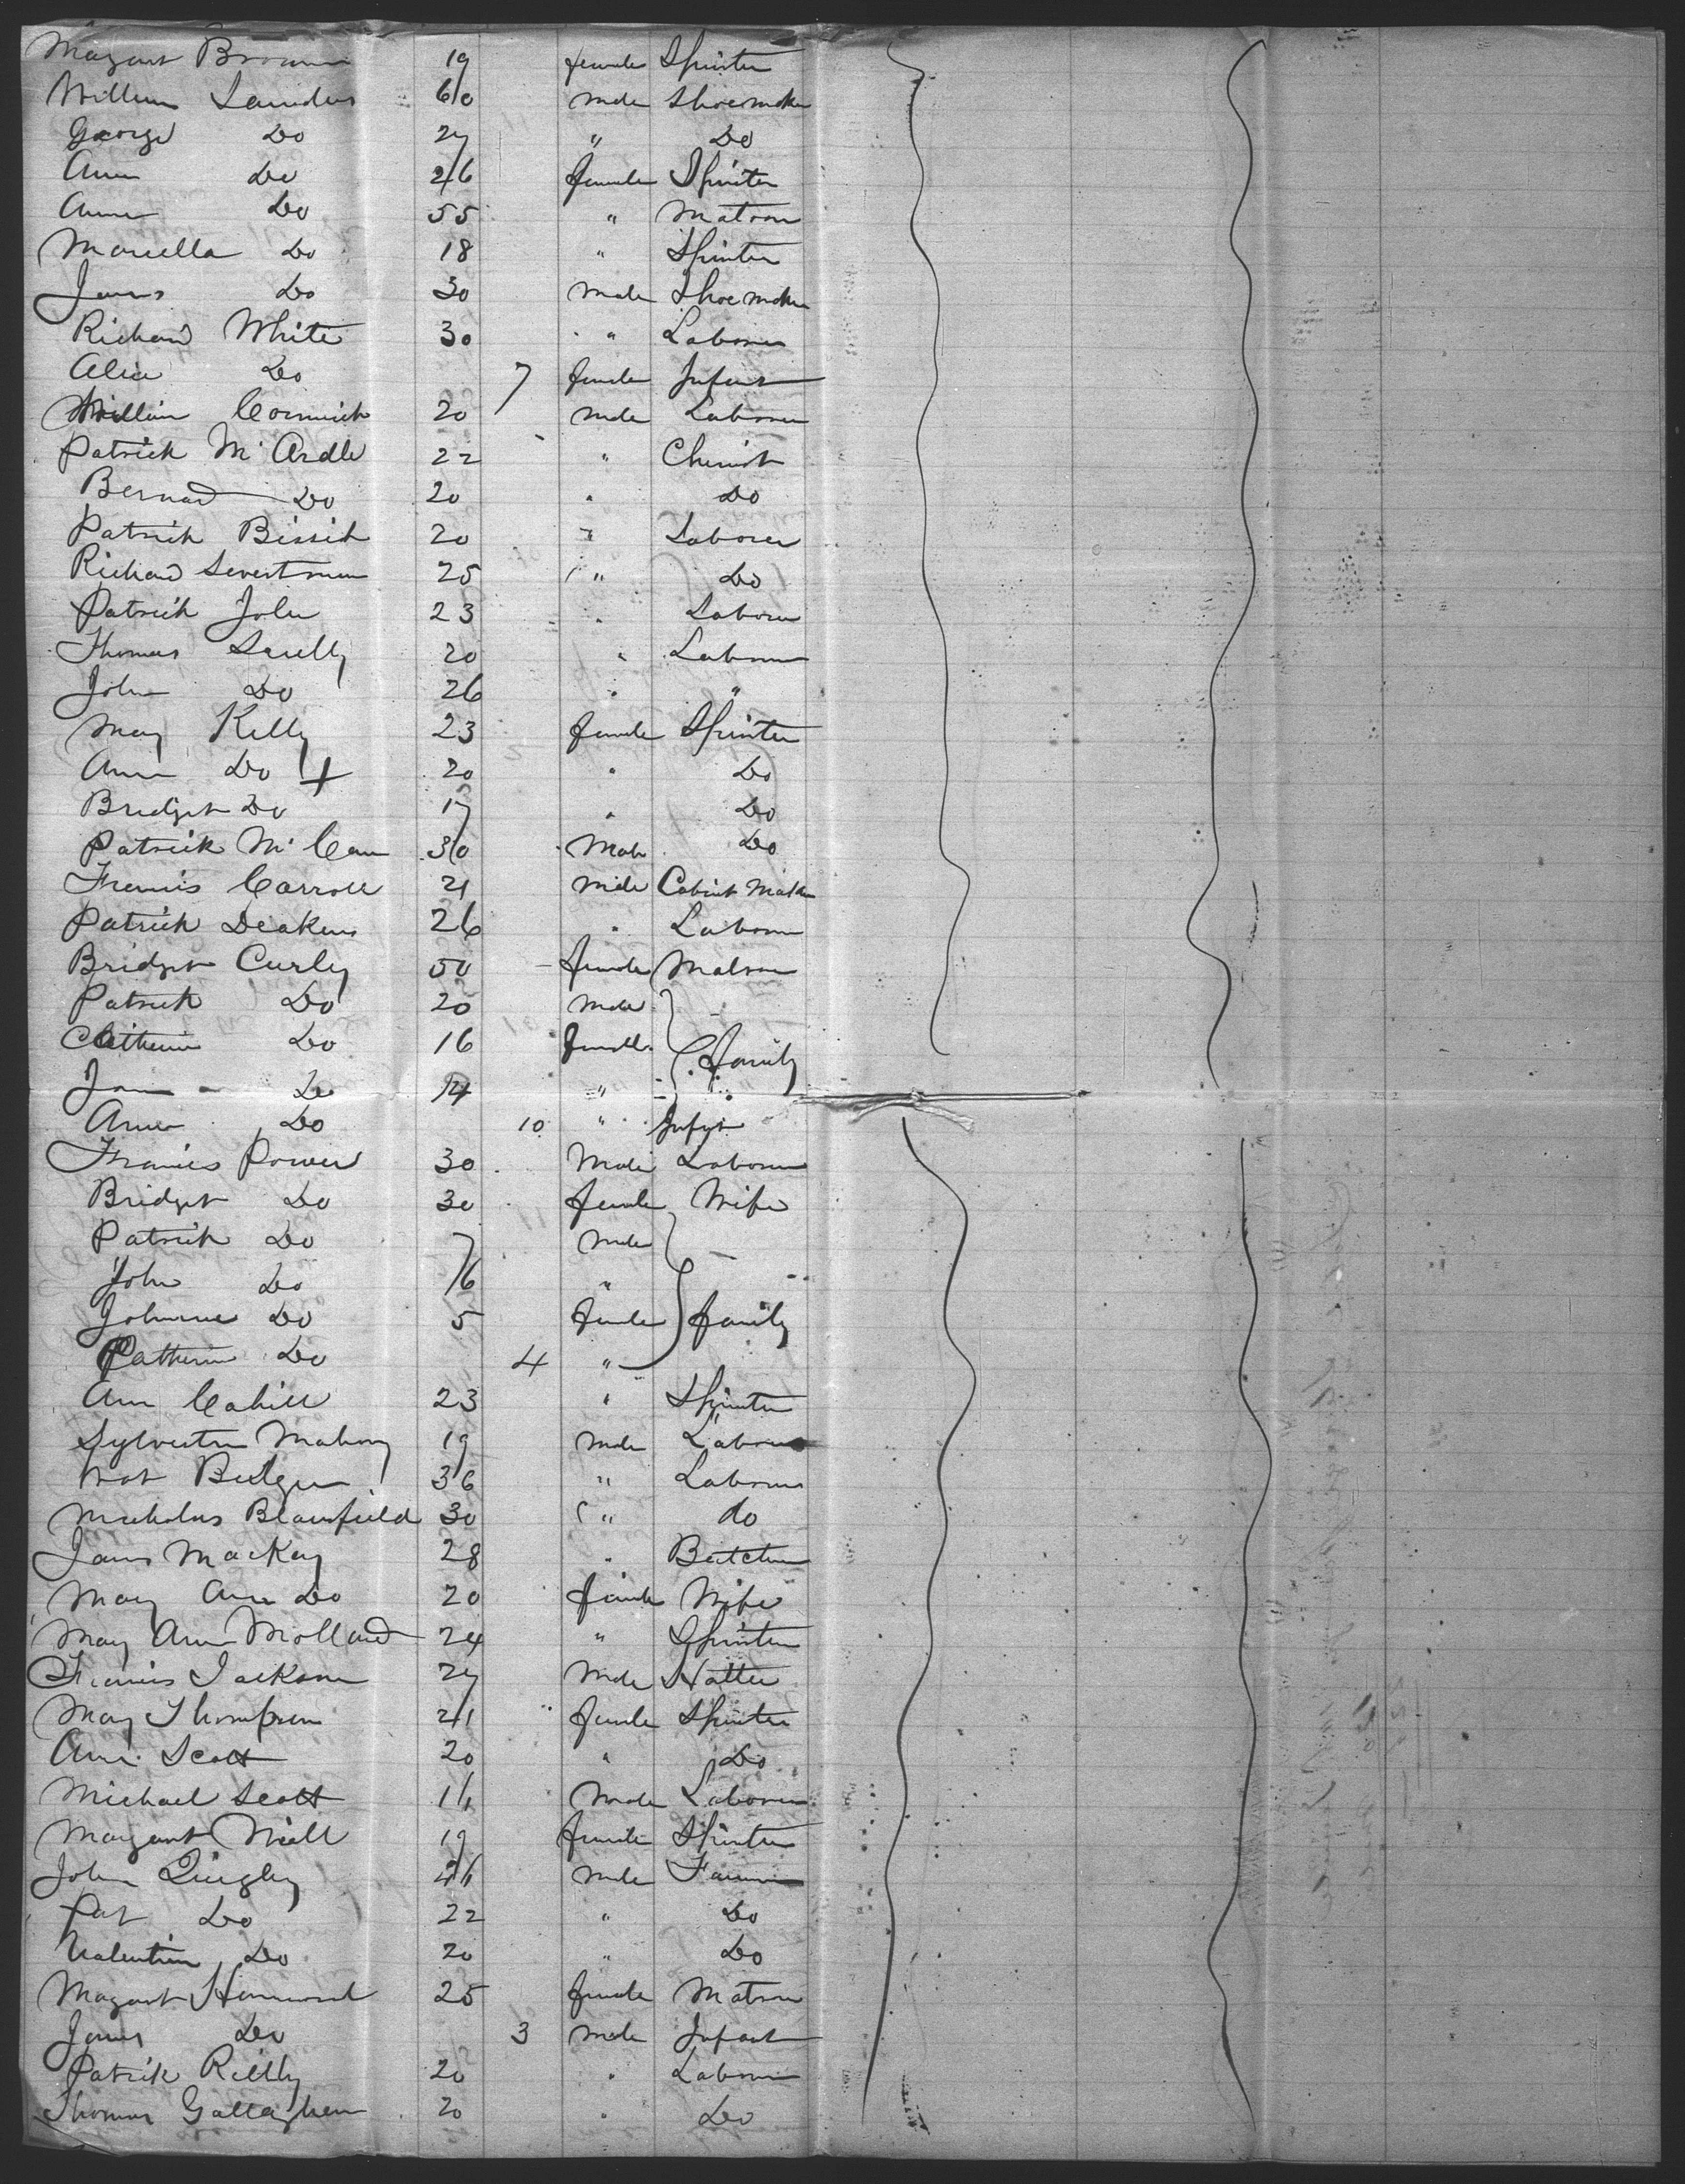 Margaret Brown 19 female Spinster
William Saunders 60 male Shoemaker
George Do 27 " Do
Ann Do 26 female Spinster
Anne Do 55 " Matron
Marcella Do 18 " Spinster
James Do 30 male Shoemaker
Richard White 30 " Laborer
Alice Do 7 female Infant
William Cormick 20 male Laborer
Patrick McArdle 22 " Chemist
Bernard Do 20 " Do
Patrick 20 " Laborer
Richard 25 " Do
Patrick 23 " Laborer
Thomas Scully 20 " Laborer
John Do 26 " "
Mary Kelly 23 female Spinster
Ann Do + 20 " Do
Bridget Do 17 " Do
Patrick McCann 30 Male Do
Francis Carroll 21 male Cabinet Maker
Patrick Deakens 26 " Laborer
Bridget Curley 50 female Matron
Patrick Do 20 male
Catherine Do 16 female family
Do 14 "
Anne Do 10 " Infant
Francis Power 30 Male Laborer
Bridget Do 30 female Wife
Patrick Do 7 male
John Do 6 "
Johanna Do 5 female family
Catherine Do 4 "
Ann Cahill 23 " Spinster
Sylvester Mahony 19 male Laborer
Mat Bulger 36 " Laborer
Nicholas Blanfield 30 " do
James MacKay 28 " Butcher
Mary Ann Do 20 female Wife
Mary Ann Molland 24 " Spinster
Francis Jackson 27 Male Hatter
Mary Thompson 21 female Spinster
Ann Scott 20 " Do
Michael Scott Male Laborer
Margaret Niell 19 female Spinster
John Quigley 26 male Farmer
Pat Do 22 " Do
Valentine Do 20 " Do
Margaret 25 female Matron
James Do 3 male Infant
Patrick Reilly 20 " Laborer
Thomas Gallagher 20 " Do